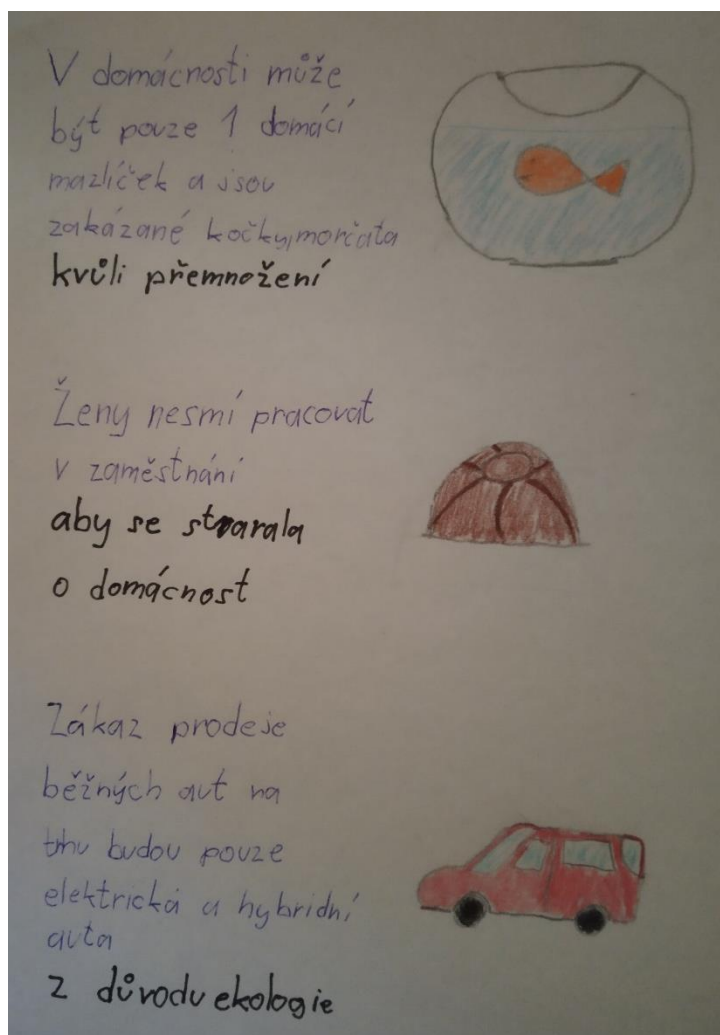 V domácnosti může
být pouze 1 domácí
mazlíček a jsou
zakázané kočky,morčata
kvůli přemnožení
Ženy nesmí pracovat
v zaměstnání
aby se starala
o domácnost
Zákaz prodeje
běžných aut na
trhu budou pouze
elektrická a hybridní
auta
z důvodu ekologie